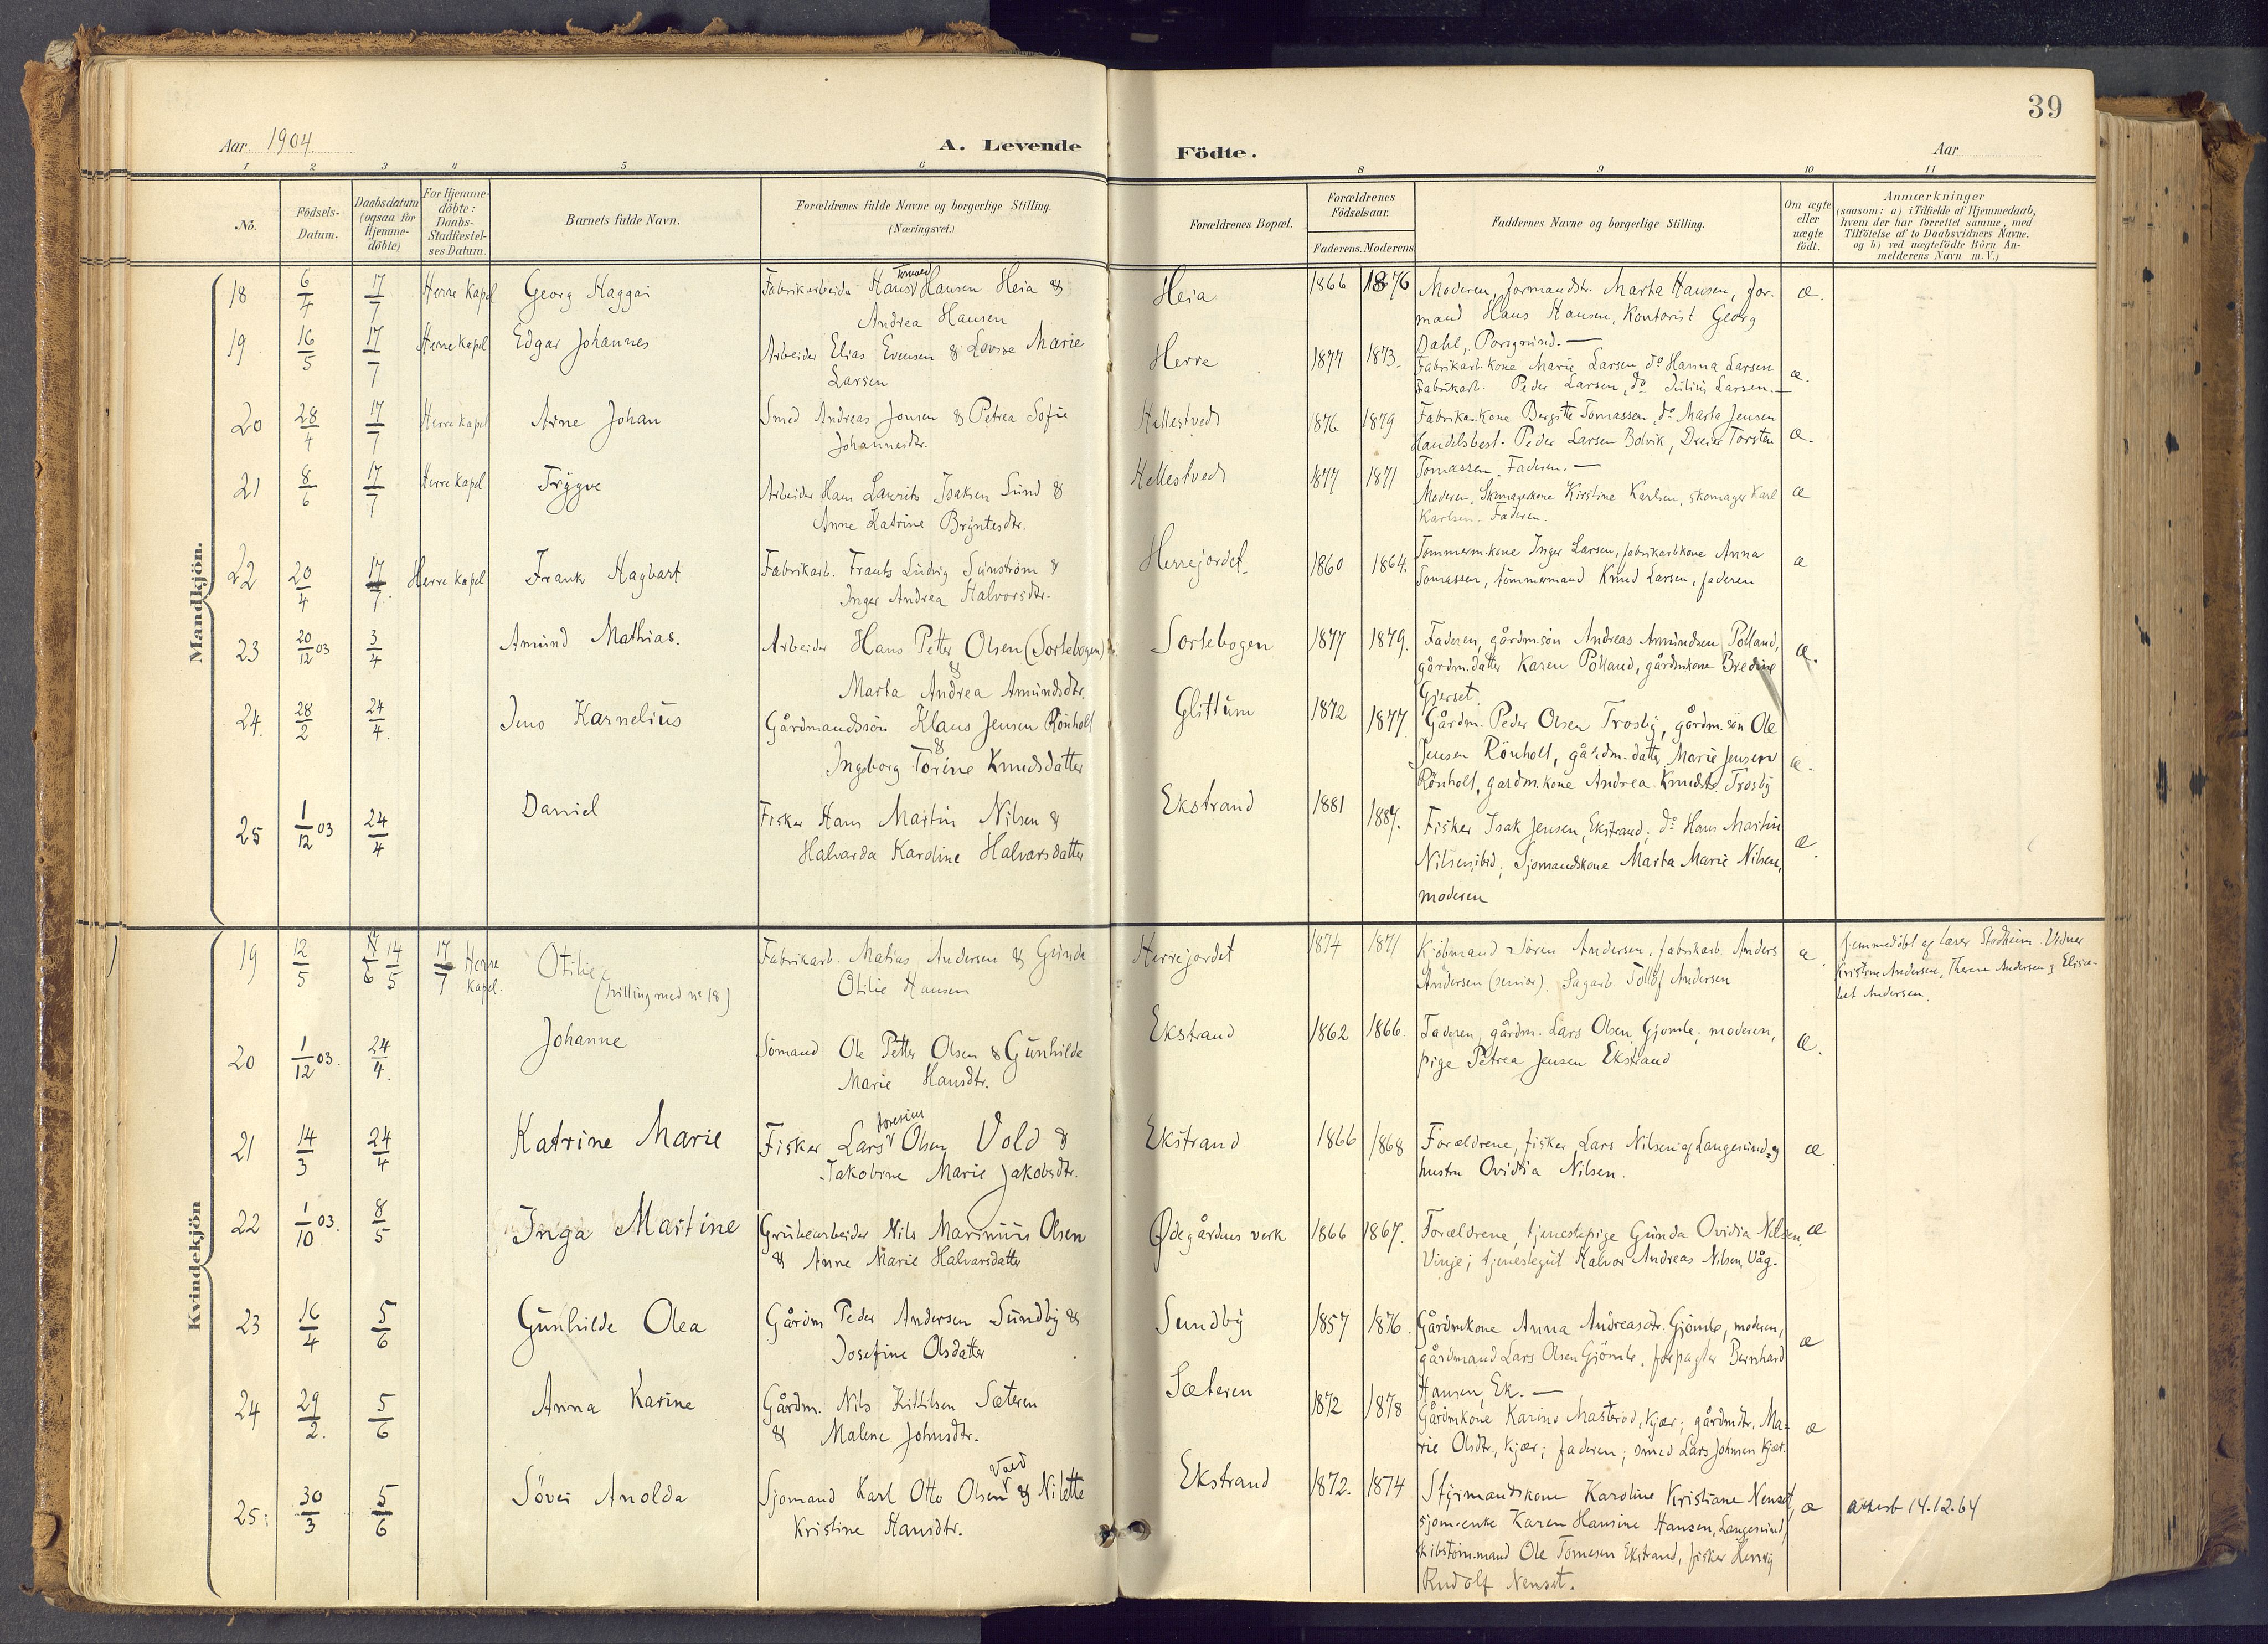 39
Aar 1904
A. Levende Födte.
Aar
1 2 3 4 5 6 8 9 10 11
No.
Födsels-Datum.
Daabsdatum (ogsaa for Hjemme-döbte)
For Hjemme-döbte: Daabs-Stadfæstel-ses Datum.
Barnets fulde Navn.
Forældrenes fulde Navne og borgerlige Stilling. (Næringsvei.)
Forældrenes Bopæl.
Forældrenes Födselsaar.
Faderens. Moderens
Faddernes Navne og borgerlige Stilling.
Om ægte eller uægte födt.
Anmærkninger
(saasom: a) i Tilfælde af Hjemmedaab,
hvem der har forrettet samme, med
Tilföielse af to Daabsvidners Navne.
og b) ved uægtefödte Börn An-
melderens Navn m. V.)
Mandkjön.
18 6/4 17/7 Herre kapel Georg Haggai
Fabrikarbeider Hans Tomas Hansen Heia &
Andrea Hansen
Heia 1866 1876
Moderen, formandstr. Marta Hansen, for-
mand Hans Hansen, Kontorist Georg
Dahl, Porsgrund. —
æ.
19 16/5 17/7 Herre kapel Edgar Johannes
Arbeider Elias Evensen & Lovise Marie
Larsen
Herre 1877 1873.
Fabrikarb. kone Marie Larsen, do Hanna Larsen
Fabrikarb. Peder Larsen, do Julius Larsen. —
æ.
20 28/4 17/7 Herre kapel Arne Johan
Smed Andreas Jonsen & Petrea Sofie
Johannesdtr.
Hellestvedt 1876 1879
Fabrika. kone Bergitte Tomassen, do Marta Jensen
Handelsbest. Peder Larsen Bolvik, Dreier Torsten
Tomassen, Faderen. —
æ.
21 8/6 17/7 Herre kapel Trygve
Arbeider Hans Laurits Isaksen Sund &
Anne Katrine Bryntesdtr.
Hellestvedt 1877 1871
Moderen, Skomagerkone Kirstine Karlsen, skomager Karl
Karlsen. Faderen.
æ
22 20/4 17/7. Herre kapel Frank Hagbart
Fabrikarb. Frants Ludvig Sunström &
Inger Andrea Halvorsdtr.
Herrejordet. 1860 1864.
Tommerm.kone Inger Larsen, fabrikarb.kone Anna
Tomassen, tömmermand Knud Larsen, faderen
æ
23 20/12 03 3/4 Amund Mathias.
Arbeider Hans Petter Olsen (Sortebogen)
&
Marta Andrea Amundsdtr.
Sortebogen 1877 1879.
Faderen, gårdm.sön Andreas Amundsen Polland,
gårdm.datter Karen Polland, gårdmkone Bredine
Gjerset.
æ.
24. 28/2 24/4. Jens Karnelius
Gårdmandssön Klaus Jensen Rönholt
&
Ingeborg Torine Knudsdatter
Glittum 1872 1877
Gårdm. Peder Olsen Trosby, gårdm.sön Ole
Jensen Rönholt, gårdm.datter Marie Jensen
Rönholt, gardm.kone Andrea Knudsd. Trosby
æ.
25 1/12 03 24/4 Daniel
Fisker Hans Martin Nilsen &
Halvarda Karoline Halvarsdatter
Ekstrand 1881 1887.
Fisker Isak Jensen, Ekstrand; do Hans Martin
Nilsen, ibid; Sjomandskone Marta Marie Nilsen,
moderen
æ.
Kvindekjön
19 12/5 14/5 17/7 Herre kapel. Otilie
(tvilling med no 18)
Fabrikarb. Matias Andersen & Gunda
Otilie Hansen
Herrejordet 1874 1871
Kjöbmand Sören Andersen, fabrikarb. Anders
Andersen (senior). Sagarb Tollof Andersen
æ.
Hjemmedöbt af lærer Stodheim. Vidner
Kristine Andersen, Therese Andersen & Elisa-
bet Andersen.
20 1/12 03. 24/4. Johanne
Sömand Ole Petter Olsen & Gunhilde
Marie Hansdtr.
Ekstrand 1862 1866
Faderen, gårdm. Lars Olsen Gjömle; moderen,
pige Petrea Jensen Ekstrand
æ.
21 14/3 24/4 Katrine Marie
Fisker Lars Olsen Vold &
Jakobine Marie Jakobsdtr.
Ekstrand 1866 1868
Forældrene, fisker Lars Nilsen af Langesund og
hustru Ovidia Nilsen.
æ
22 1/10 03. 8/5 Inga Martine
Grubearbeider Nils Marinius Olsen
& Anne Marie Halvarsdatter
Ødegårdens verk 1866 1867.
Forældrene, tjenestepige Gunda Ovidia Nilsen,
Vinje; tjenestegut Halvor Andreas Nilsen, Våg.
æ
23 16/4 5/6 Gunhilde Olea
Gårdm Peder Andersen Sundby &
Josefine Olsdatter
Sundby 1857 1876.
Gårdmkone Anna Andreasdtr. Gjömle, moderen,
gårdmand Lars Olsen Gjömle, forpagter Bernhard
Hansen, Ek. —
æ
24 29/2. 5/6 Anna Karine
Gårdm. Nils Kittilsen Sæteren
& Malene Johnsdtr.
Sæteren 1872 1878
Gårdmkone Karine Masterod, Kjær; gårdmdtr. Ma-
rie Olsdtr, Kjær; faderen; smed Lars Johnsen Kjær.
æ
25. 30/3 5/6 Söver Anolda
Sjomand Karl Otto Olsen Vold & Nilette
Kristine Hansdtr.
Ekstrand 1872. 1874
Styrmandskone Karoline Kristiane Nenset,
sjom-enke Karen Hansine Hansen, Langesund,
skibstöm.mand Ole Tomesen Ekstrand, fisker Henrig
Rudolf Nenset.
æ
attest 14.12.64